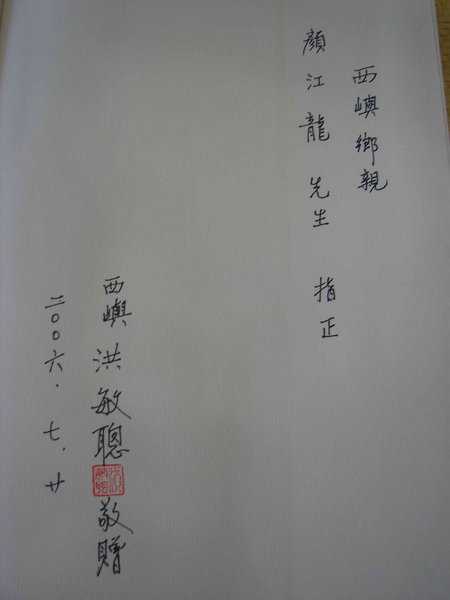 西嶼鄉親
顏江龍先生 指正
西嶼 洪敏聰 敬贈
二〇〇六.七.廿